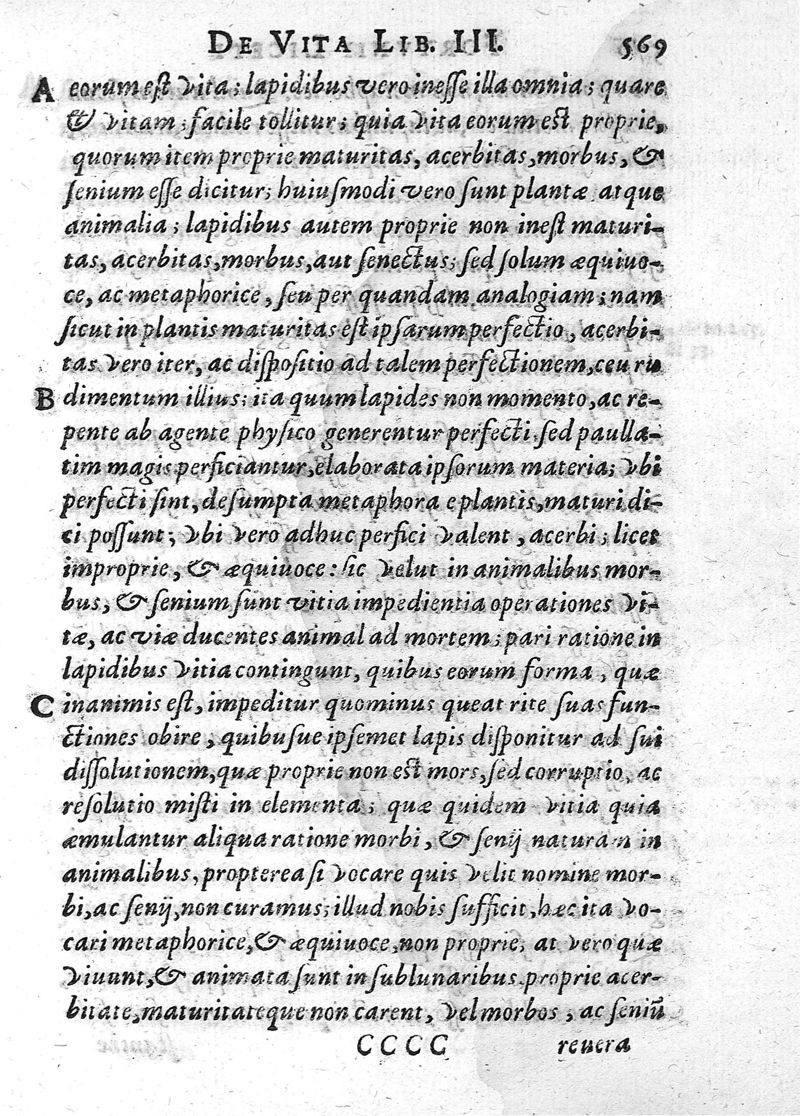 DE VITA LIB. III. 569
A eorum eſt vita; lapidibus vero ineſſe illa omnia; quare
& vitam; facile tollitur; quia vita eorum est proprie,
quorum item proprie maturitas, acerbitas, morbus, &
ſenium eſſe dicitur; huiuſmodi vero ſunt plantæ atque
animalia; lapidibus autem proprie non ineſt maturi-
tas, acerbitas, morbus, aut ſenectus; ſed ſolum æquiuo-
ce, ac metaphorice, ſeu per quandam analogiam; nam
ſicut in plantis maturitas est ipſarum perfectio, acerbi-
tas vero iter, ac diſpoſitio ad talem perfectionem, ceu ru
B dimentum illius; ita quum lapides non momento, ac re-
pente ab agente phyſico generentur perfecti, ſed paulla-
tim magis perficiantur, elaborata ipſorum materia; vbi
perfecti ſint, deſumpta metaphora e plantis, maturi di-
ci poſſunt; vbi vero adhuc perfici valent, acerbi; licet
improprie, & æquiuoce: ſic velut in animalibus mor-
bus, & ſenium ſunt vitia impedientia operationes vi-
tæ, ac viæ ducentes animal ad mortem; pari ratione in
lapidibus vitia contingunt, quibus eorum forma, quæ
C inanimis eſt, impeditur quominus queat rite ſuas fun-
ctiones obire, quibuſue ipſemet lapis diſponitur ad ſui
diſſolutionem, quæ proprie non est mors, ſed corruptio, ac
reſolutio misti in elementa; quæ quidem vitia quia
æmulantur aliqua ratione morbi, & ſenij naturam in
animalibus, propterea ſi vocare quis velit nomine mor-
bi, ac ſenij, non curamus; illud nobis ſufficit, hæc ita vo-
cari metaphorice, & æquiuoce, non proprie; at vero quæ
viuunt, & animata ſunt in ſublunaribus proprie acer-
bitate, maturitateque non carent, vel morbos, ac ſeniū
CCCC reuera